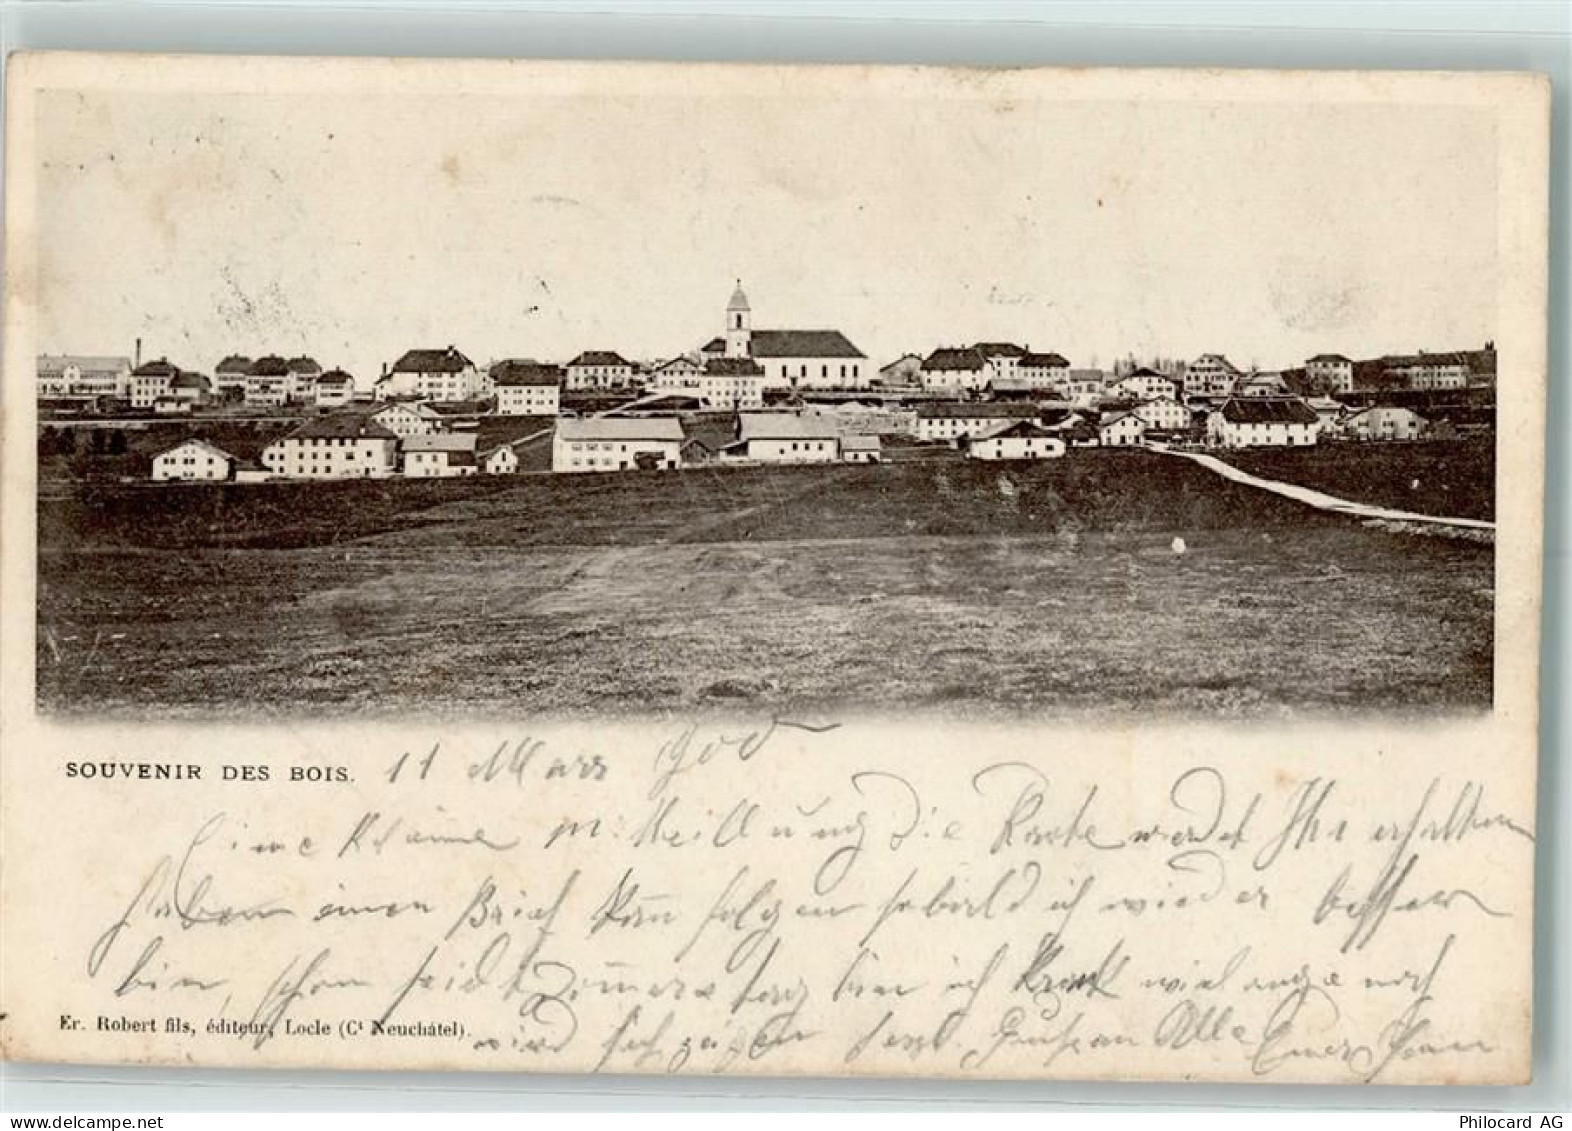 SOUVENIR DES BOIS. 11 März 900
Eine kleine Mitheillung die Karte werdet Ihr erhalten
haben einen Brief kann folgen sobald ich wieder besser
bin, schon seit Tag bin ich krank wie lange noch
wird sich zeigen Gruss an Alle Euer
Er. Robert fils, éditeur, Locle (Ct Neuchâtel).
Philocard AG